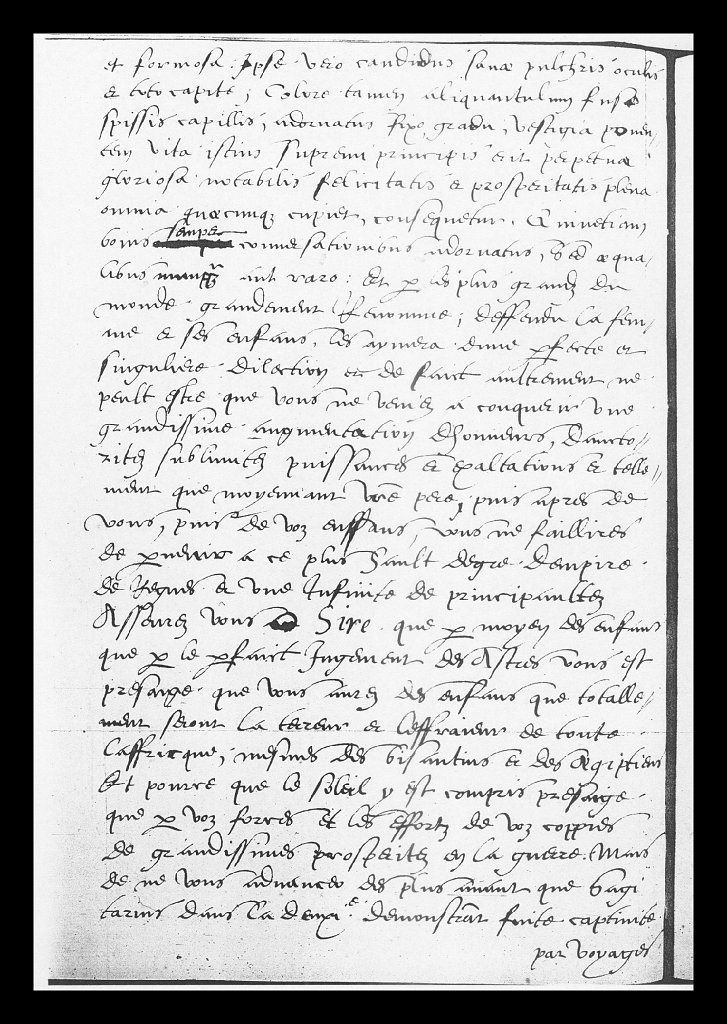 et formosa. Ipse vero candidus sane pulchris oculis
et toto capite, Colore tamen aliquantulum fusco
spissis capillis, adornatus fixo gradu, vestigia ponen-
tem vita istius supremi principis erit perpetua
gloriosa notabilis felicitatis et prosperitatis plena
omnia quæcunq; cupiet, consequetur. Quinetiam
bonis semper conversationibus adornatus, sed æqua-
libus aut raro: Et p les plus grandz du
monde grandement Renomme; deffendu la fem-
me et ses enfans, les aymera dune pfecte et
singuliere dilection et de faict aultrement ne
peult estre que vous ne veniez a conquerir une
grandissime augmentation dhonneurs, daucto-
ritez sublimitez puissances et exaltations et telle-
ment que moyennant vre pere, puis apres de
vous, puis de voz enffans, vous ne faillires
de pvenir a ce plus hault degre dempire
de Regnes et une Infinite de principaultez
Asseurez vous Sire que p moyen des enfans
que p le pfaict Jugement des Astres vous est
presaige que vous aurez des enfans que totalle-
ment seront la terreur et leffraieur de toute
Laffricque, mesmes des bisantins et des ægiptiens
Et pource que le soleil y est compris presaige
que p voz forces et les effortz de voz coppies
de grandissimes prosperitez en la guerre. Mais
de ne vous advancer des plus avant que Sagi
tarius dans la deuxi.e demonstrat fuite captivite
par voyages